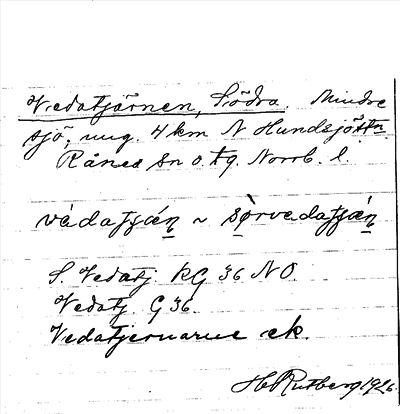 Vedatjärnen, Södra. Mindre
sjö, ung. 4 km N Hundsjötn
Råneå sn o. tg. Norrb. l.
vèdatjạ́ṇ ~ sö̀rvedatjạ́ṇ
S. Vedatj. RG 36 NO.
Vedatj. G 36.
Vedatjernarne ek.
H Rutberg 1926.